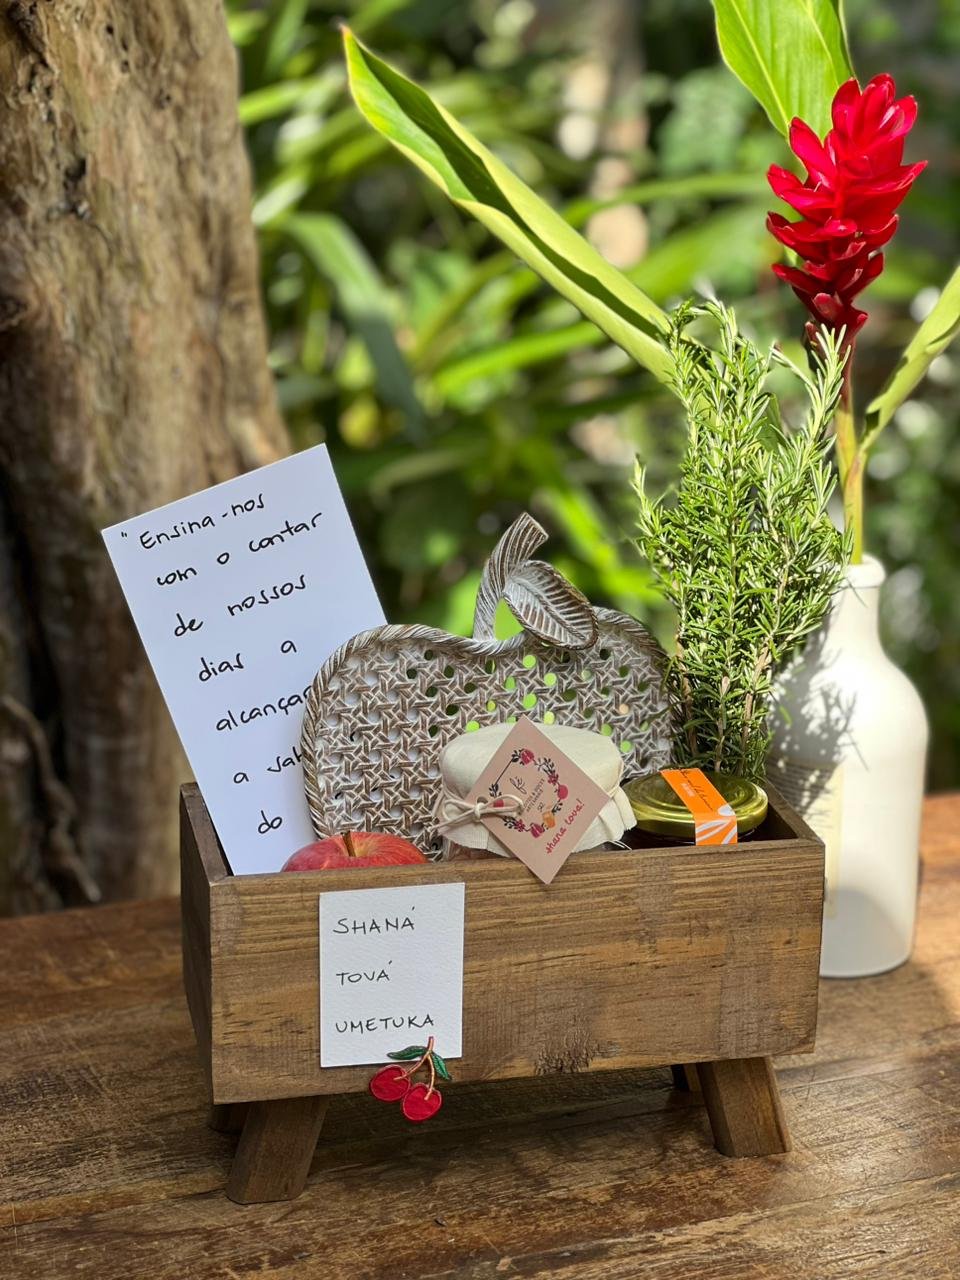 "Ensina-nos
com o contar
de nossos
dias a
alcançar
a
do
fé
shana tova!
SHANÁ
TOVÁ
UMETUKA